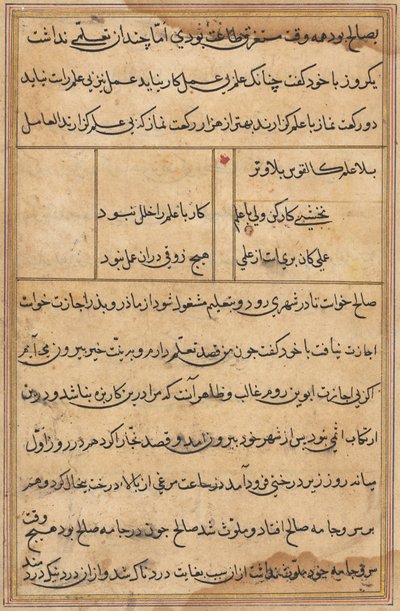 بصالح بود همه وقت مستغرق طاعت بودی اما چندان تعلمی نداشت
یکروز با خود گفت چنانک علم بی عمل کار نیاید عمل نیز بی علم راست نیاید
دو رکعت نماز با علم گزارند بهتر از هزار رکعت نماز که بی علم گزارند العامل
بلا علم کالقوس بلا وتر
نخشبی کار کن ولی با علم کار با علم را خلل نبود
علی کان بری مات از علی هیچ ذوقی دران عمل نبود
صالح خواست تا در شهری رود و بتعلیم مشغول شود از مادر و پدر اجازت خواست
اجازت نیافت با خود گفت چون من قصد تعلم دارم و بر نیت خیر بیرون می آیم
اگر بی اجازت ابوین روم غالب و ظاهر آنست که مرا درین کار بزه نباشد و درین
ارتکاب اثمی نبود پس از شهر خود بیرون آمد و قصد بخارا کرد هم در روز اول
میانه روز زیر درختی فرود آمد در ساعت مرغی از بالا درخت بیخال کرد و هم
بر سر و جامه صالح افتاد و ملوث شد صالح چون در جامه صالح بود هیچ وقت
سر و جامه خود ملوث نداشت از آن سبب بغایت دردناک شد و از آن درد نیک در درد شد